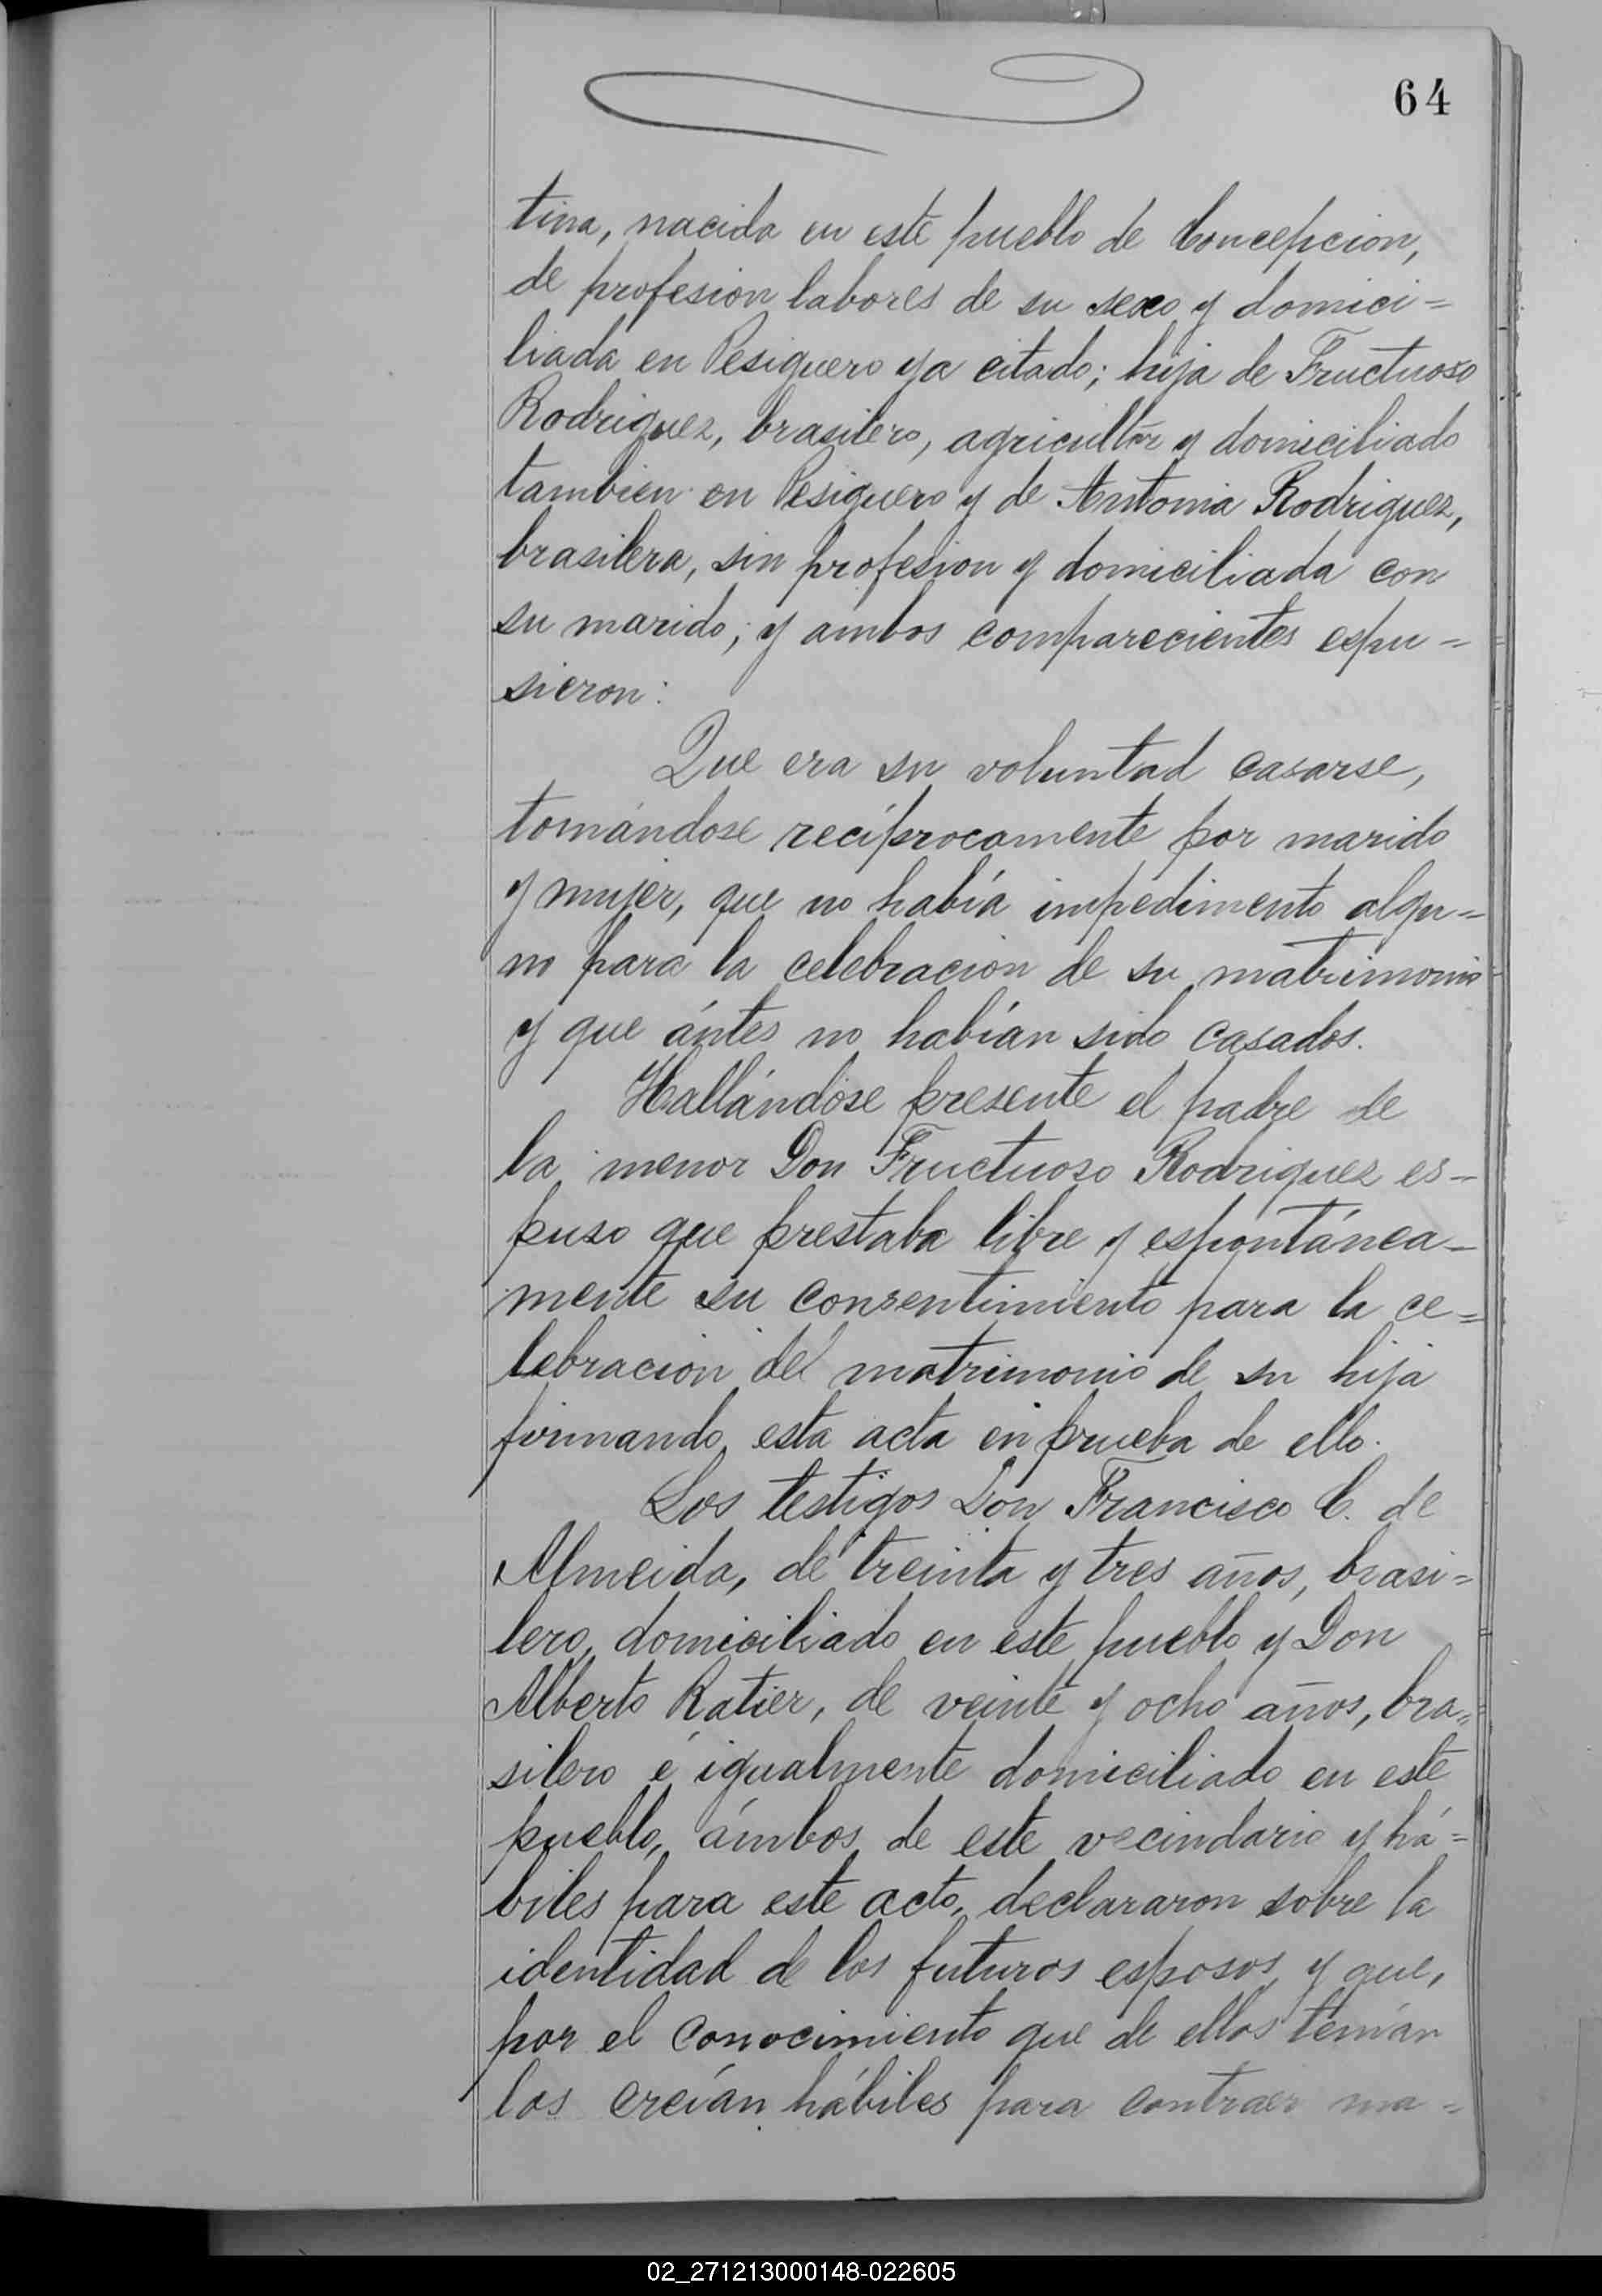 64
tina, nacida en este pueblo de Concepcion,
de profesion labores de su sexo y domici=
liada en Pesiguero ya citado; hija de Fructuoso
Rodriguez, brasilero, agricultor y domiciliado
tambien en Pesiguero y de Antonia Rodriguez,
brasilera, sin profesion y domiciliada con
su marido; y ambos comparecientes espu=
sieron:
Que era su voluntad casarse,
tomándose recíprocamente por marido
y mujer, que no había impedimento algu=
no para la celebracion de su matrimonio
y que ántes no habían sido casados.
Hallándose presente el padre de
la menor Don Fructuoso Rodriguez es-
puso que prestaba libre y espontánea-
mente su consentimiento para la ce=
lebracion del matrimonio de su hija
firmando esta acta en prueba de ello.
Los testigos Don Francisco C. de
Almeida, de treinta y tres años, brasi=
lero, domiciliado en este pueblo y Don
Alberto Ratier, de veinte y ocho años, bra=
silero é igualmente domiciliado en este
pueblo, ámbos de este vecindario y há=
biles para este acto, declararon sobre la
identidad de los futuros esposos y que,
por el conocimiento que de ellos tenían
los creían hábiles para contraer ma=
02_271213000148-022605